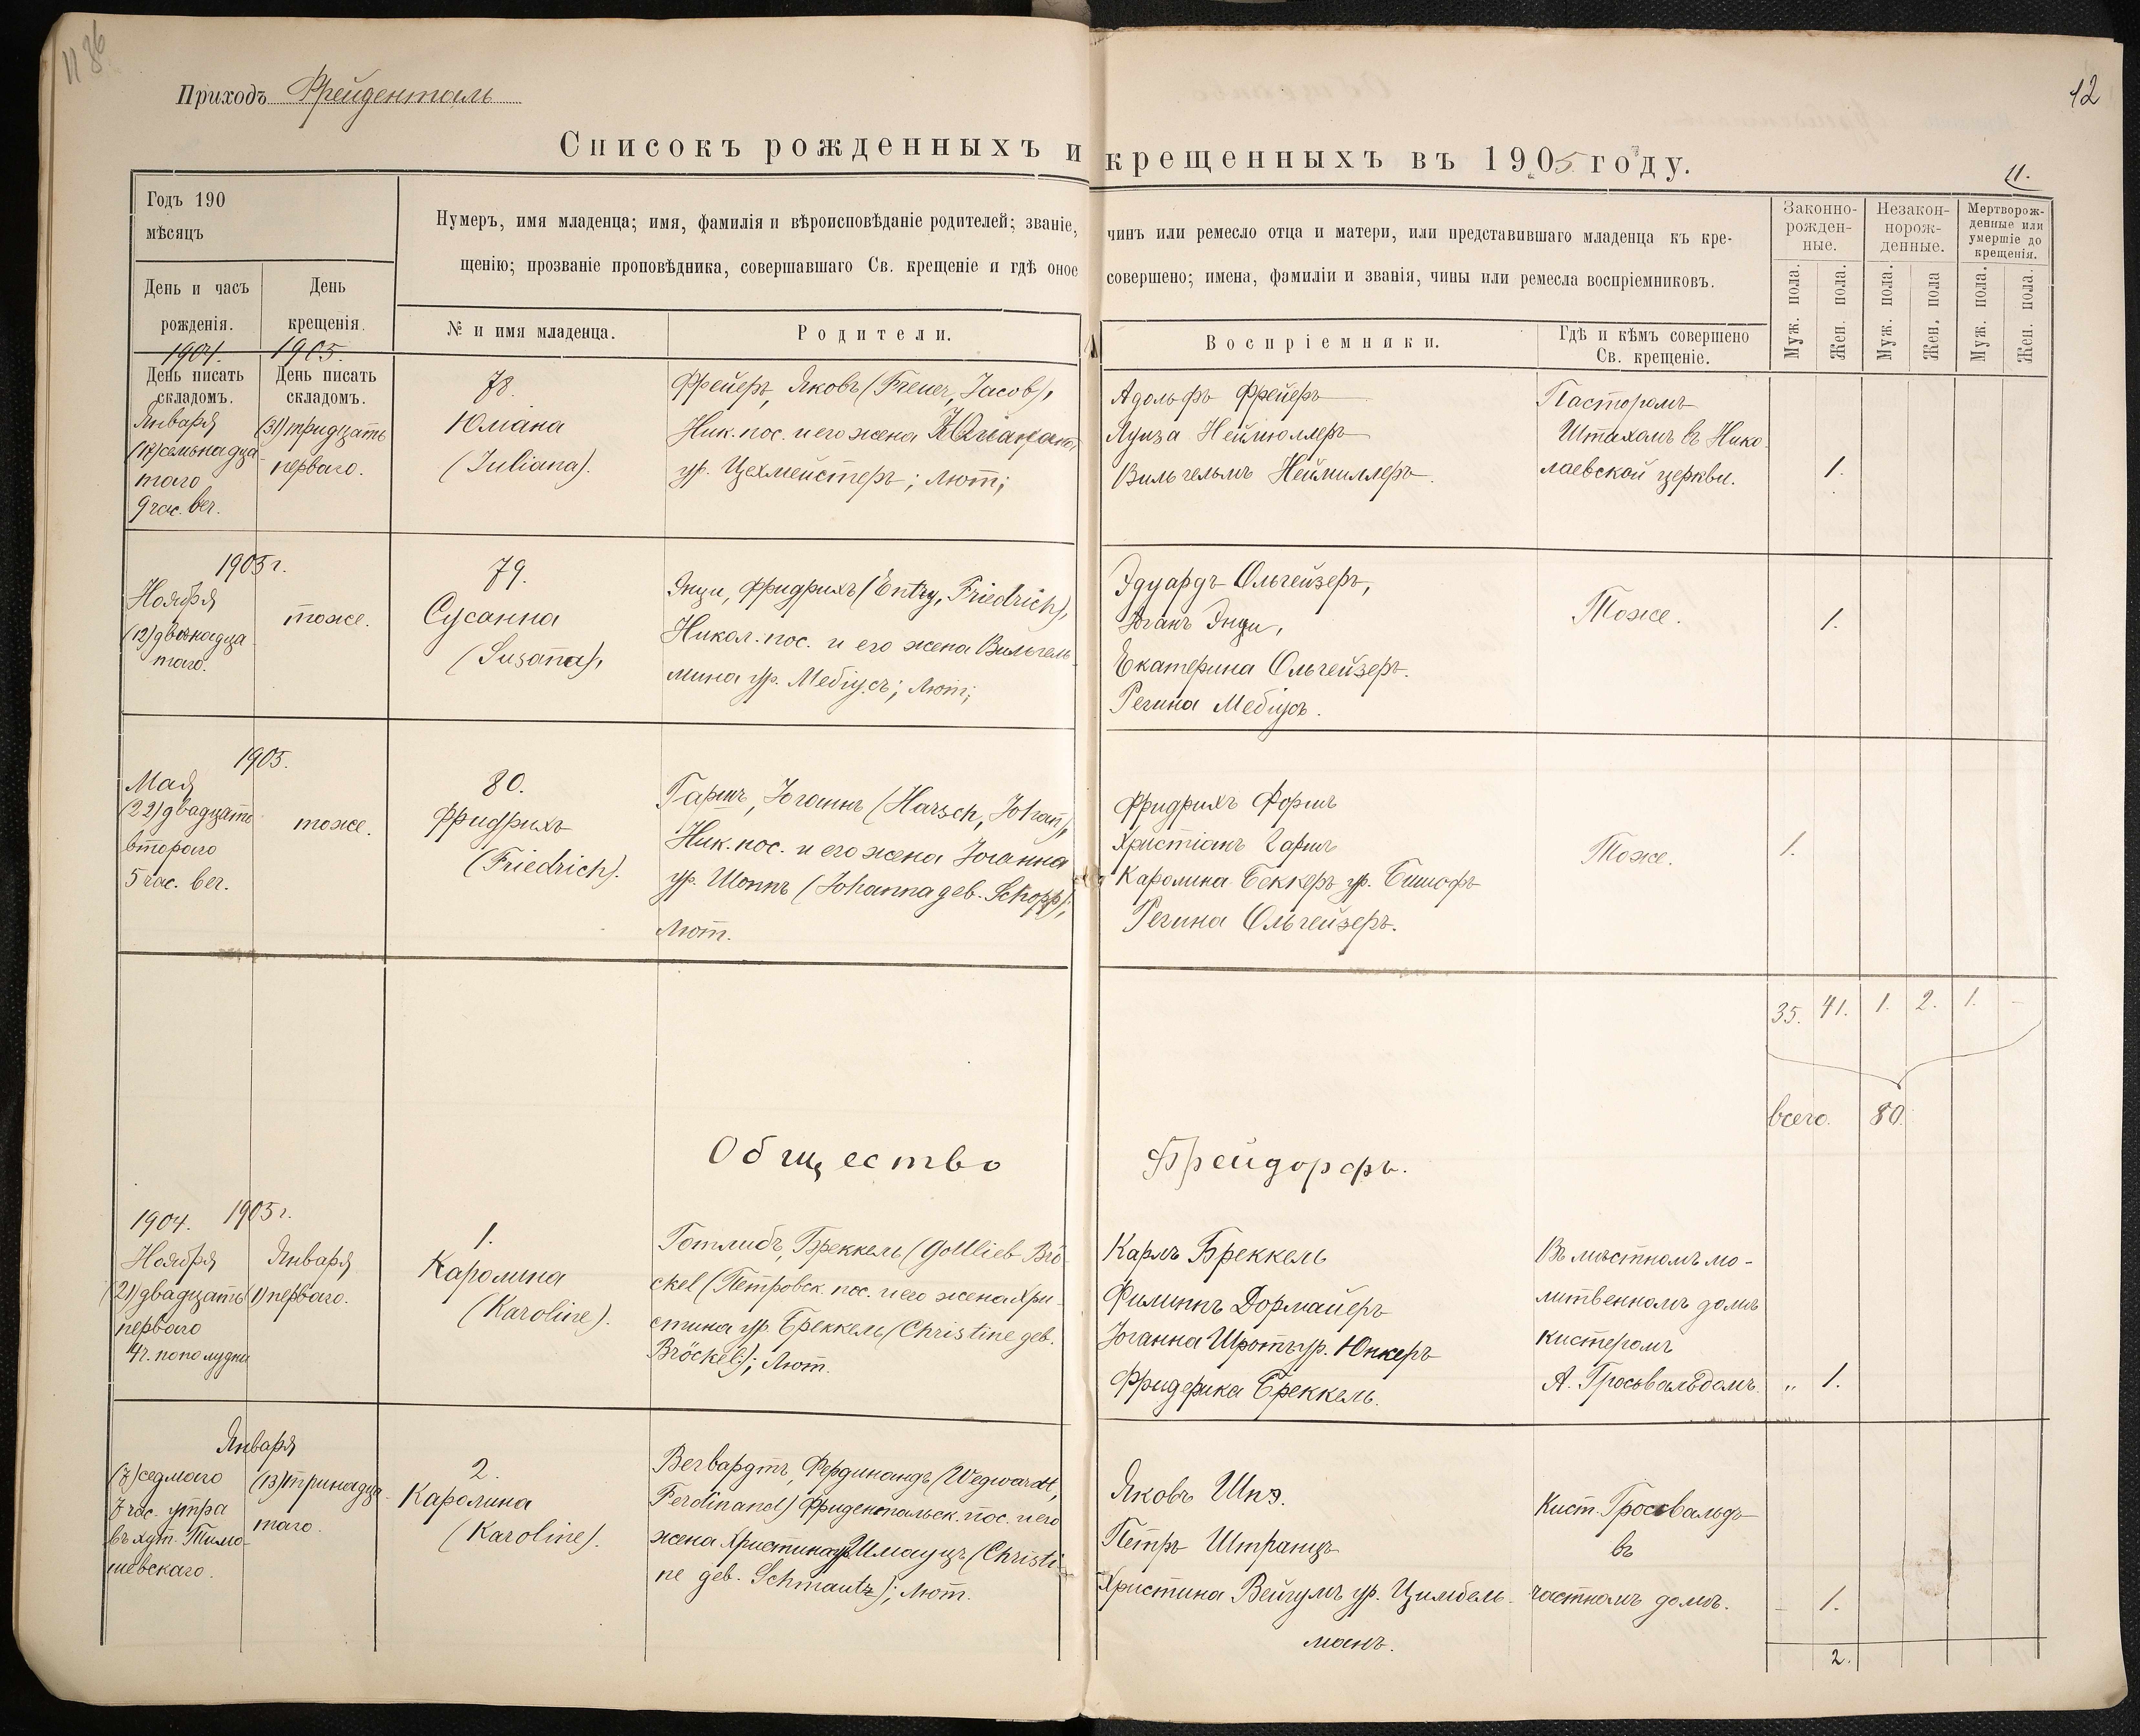 11 36
Приходъ Фрейденталь
12
Списокъ рожденныхъ и крещенныхъ въ 1905 году.
11.
Годъ 190
мѣсяцъ
День и часъ
рожденія.
1904.
День писать
складомъ.
День
крещенія.
1905.
День писать
складомъ.
Нумеръ, имя младенца; имя, фамилія и вѣроисповѣданіе родителей; званіе, чинъ или ремесло отца и матери, или представившаго младенца къ кре-
щенію; прозваніе проповѣдника, совершавшаго Св. крещеніе и гдѣ оное совершено; имена, фамиліи и званія, чины или ремесла воспріемниковъ.
№ и имя младенца.
Родители.
Воспріемники.
Гдѣ и кѣмъ совершено
Св. крещеніе.
Законно-
рожден-
ные.
Незакон-
норож-
денные.
Мертворож-
денные или
умершіе до
крещенія.
Муж. пола.
Жен. пола.
Муж. пола.
Жен. пола
Муж. пола.
Жен. пола.
Января
(17) семьнадца
таго
9 час. веч.
(31) тридцать
перваго.
78.
Юліана
(Juliana).
Фрейеръ, Яковъ (Freuer, Jacob),
Ник. пос. и его жена Юліана
ур. Цехмейстеръ; Лют;
Адольфъ Фрейеръ
Луиза Неймюллеръ
Вильгельмъ Неймиллеръ.
Пасторомъ
Штахомъ въ Нико-
лаевской церкви.
1.
1905 г.
Ноября
(12) двѣнадца
таго.
тоже.
79.
Сусанна
(Susana),
Энци, Фридрихъ (Entzy, Friedrich),
Никол. пос. и его жена Вильгель-
мина ур. Мебіусъ; Лют;
Эдуардъ Ольгейзеръ,
Іоганъ Энци,
Екатерина Ольгейзеръ.
Регина Мебіусъ.
Тоже.
1.
1905.
Мая
(22) двадцать
второго
5 час. веч.
тоже.
80.
Фридрихъ
(Friedrich).
Гаршъ, Іоганнъ (Harsch, Johan),
Ник. пос. и его жена Іоганна
ур. Шоппъ (Johanna geb. Schopp);
Лют.
Фридрихъ Форшъ
Христіанъ Гаршъ
Каролина Беккеръ ур. Бишофъ
Регина Ольгейзеръ.
Тоже.
1.
35. 41. 1. 2. 1. -
всего. 80.
Общество Брейдорфъ.
1904.
Ноября
(21) двадцать
перваго
4 ч. пополудни
1905 г.
Января
(1) перваго.
1.
Каролина
(Karoline).
Готлибъ, Бреккель (Gottlieb Brö-
ckel (Петровск. пос. и его жена Хри-
стина ур. Бреккель (Christine geb.
Bröckel); Лют.
Карлъ Бреккель
Филиппъ Дормайеръ
Іоганна Шротъ ур. Юнкеръ
Фридерика Бреккель.
Въ мѣстномъ мо-
литвенномъ домѣ
кистеромъ
А. Гросвальдомъ.
„ 1.
Января
(7) седмаго
7 час. утра
въ хут. Тимо-
шевскаго.
(13) тринадца-
таго.
2.
Каролина
(Karoline).
Вегвардтъ, Фердинандъ (Wegwardt,
Ferdinand) Фриденстальск. пос. и его
жена Христина ур. Шмауцъ (Christi-
ne geb. Schmautz); Лют.
Яковъ Шпэ.
Петръ Штранцъ
Христина Вейгумъ ур. Цимбель-
манъ.
Кист. Гросвальдъ
въ
частномъ домѣ.
- 1.
2.